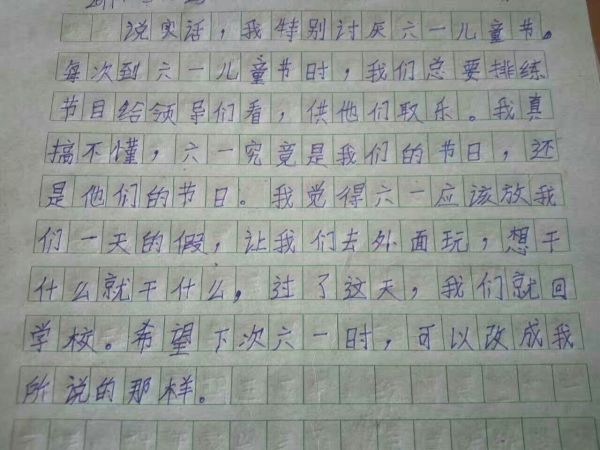 说实话，我特别讨灰六一儿童节。
每次到六一儿童节时，我们总要排练
节目给领导们看，供他们取乐。我真
搞不懂，六一究竟是我们的节日，还
是他们的节日。我觉得六一应该放我
们一天的假，让我们去外面玩，想干
什么就干什么，过了这天，我们就回
学校。希望下次六一时，可以改成我
所说的那样。